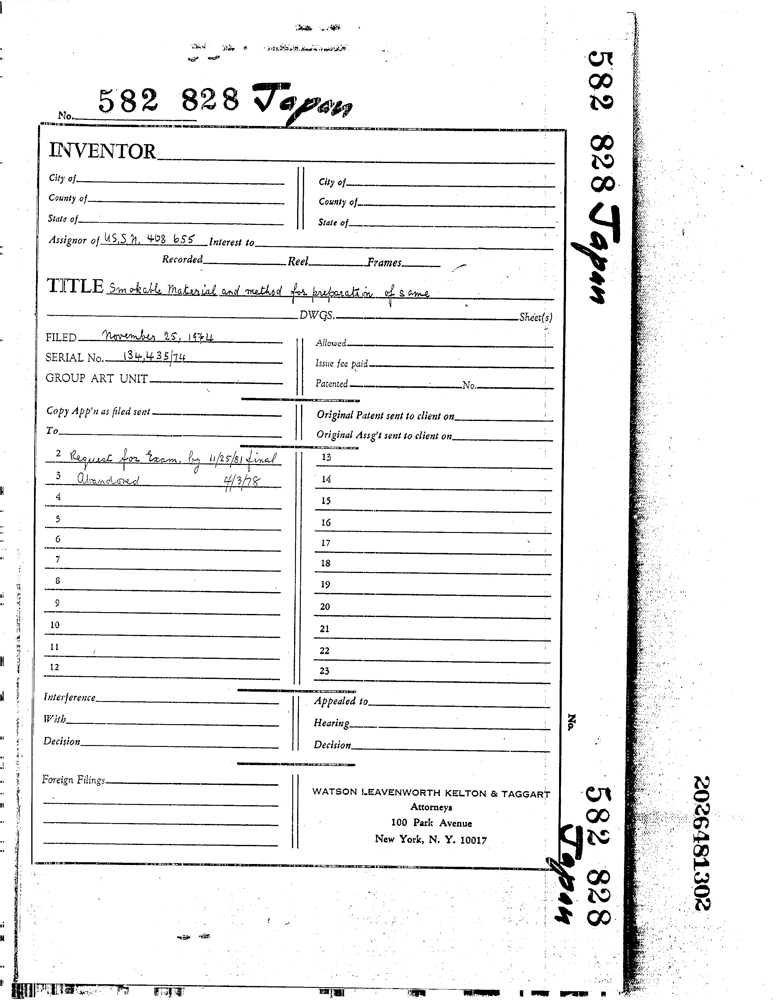 No. 582 828 Japan
INVENTOR
City of
County of
State of
City of
County of
State of
Assignor of U.S.S.N. 408 655 Interest to
Recorded Reel Frames
TITLE Smokable Material and method for preparation of same
DWGS. Sheet(s)
FILED November 25, 1974
SERIAL No. 134,435/74
GROUP ART UNIT
Allowed
Issue fee paid
Patented No.
Copy App'n as filed sent
To
Original Patent sent to client on
Original Assg't sent to client on
2 Request for Exam. by 11/25/81 final
3 Abandoned 4/3/78
4
5
6
7
8
9
10
11
12
13
14
15
16
17
18
19
20
21
22
23
Interference
With
Decision
Appealed to
Hearing
Decision
Foreign Filings
WATSON LEAVENWORTH KELTON & TAGGART
Attorneys
100 Park Avenue
New York, N. Y. 10017
582 828 Japan
No. 582 828 Japan
2026481302